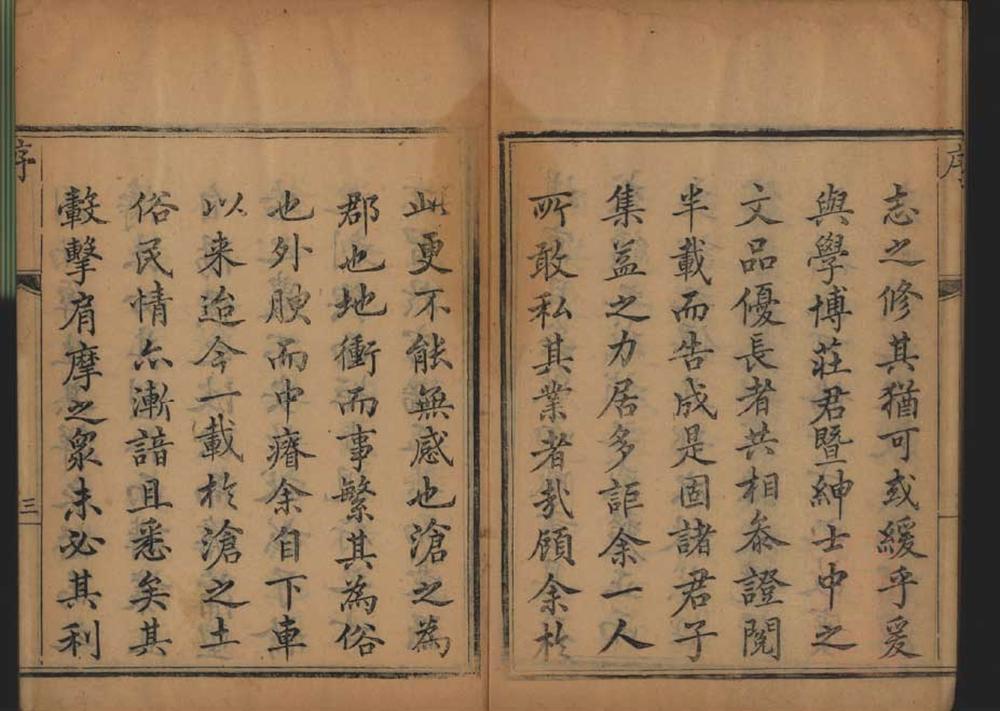 序
志之修其猶可或緩乎爰
與學博莊君暨紳士中之
文品優長者共相叅證閱
半載而告成是固諸君子
集益之力居多詎余一人
所敢私其業者㦲顧余扵
此更不能無感也滄之為
郡也地衝而事繁其為俗
也外腴而中瘠余自下車
以来迨今一載扵滄之土
俗民情亦漸諳且悉矣其
轂擊肩摩之衆未必其利
序
三